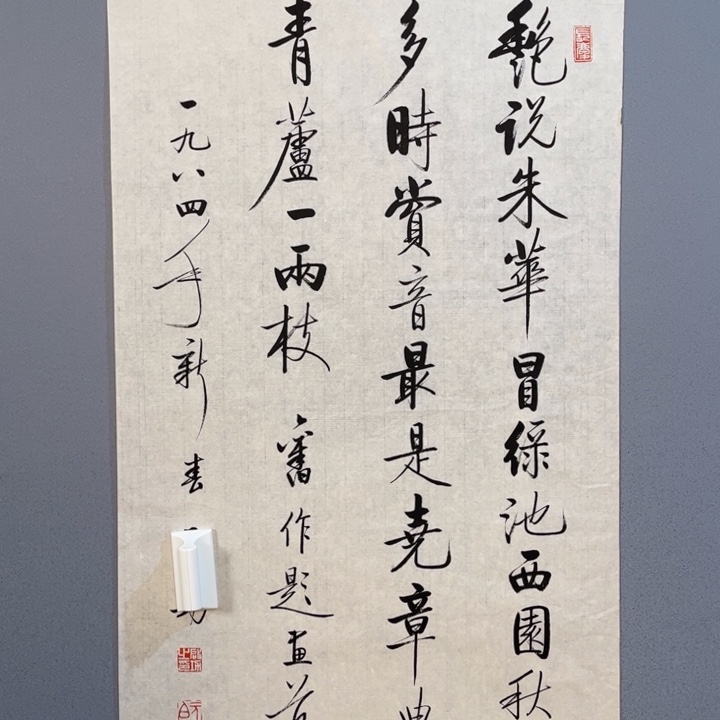 艷说朱華冒綠池西園秋
多時賞音最是堯章
青蘆一兩枝 舊作題畫
一九八四年新春